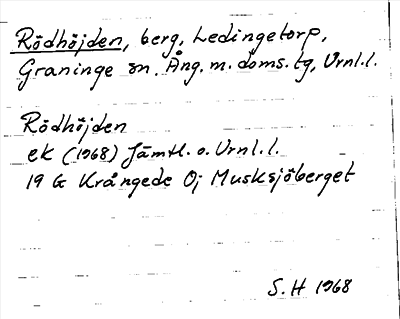 Rödhöjden, berg, Ledingetorp,
Graninge sn. Ång. m. doms. tg, Vrnl.l.
Rödhöjden
ek (1968) Jämtl. o. Vrnl.l.
19 G Krångede 0j Musksjöberget
S.H 1968